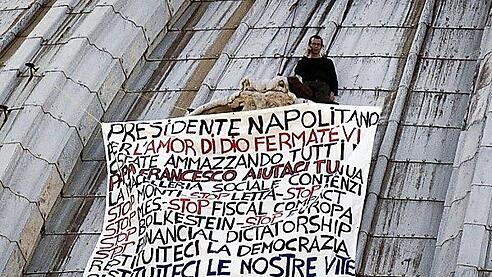 PRESIDENTE NAPOLITANO
PER L'AMOR DI DIO FERMATEVI
STATE AMMAZZANDO TUTTI
PAPA FRANCESCO AIUTACI TU
LA MACELLERIA SOCIALE
STOP MONTI - STOP LETTA - STOP
STOP - STOP FISCAL COMPACT
STOP BOLKESTEIN - STOP EUROPA
STOP FINANCIAL DICTATORSHIP
RESTITUITECI LA DEMOCRAZIA
RESTITUITECI LE NOSTRE VITE